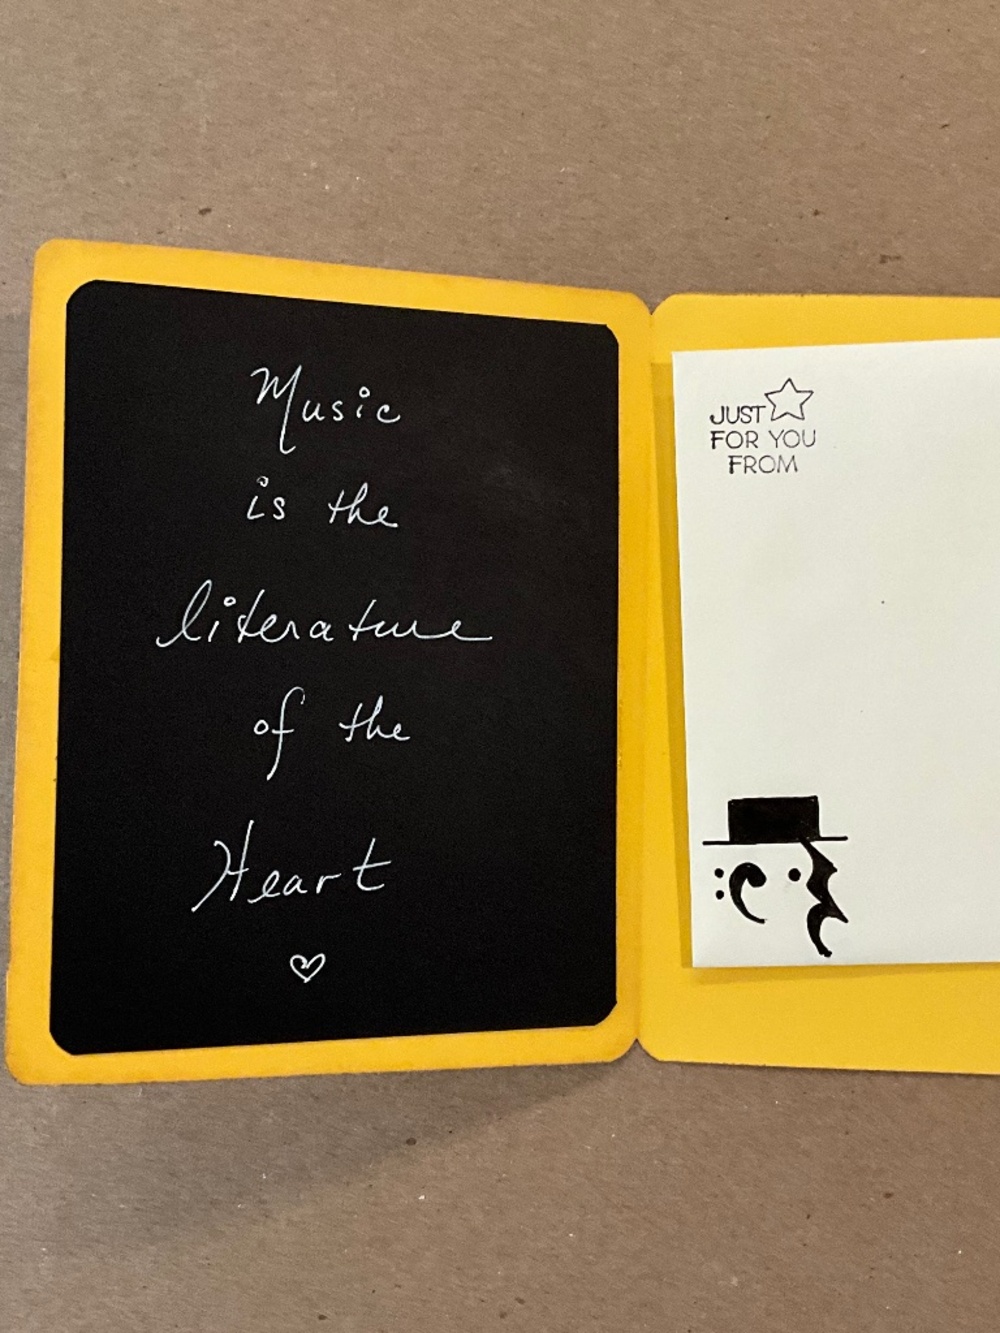 Music
is the
literature
of the
Heart
JUST
FOR YOU
FROM